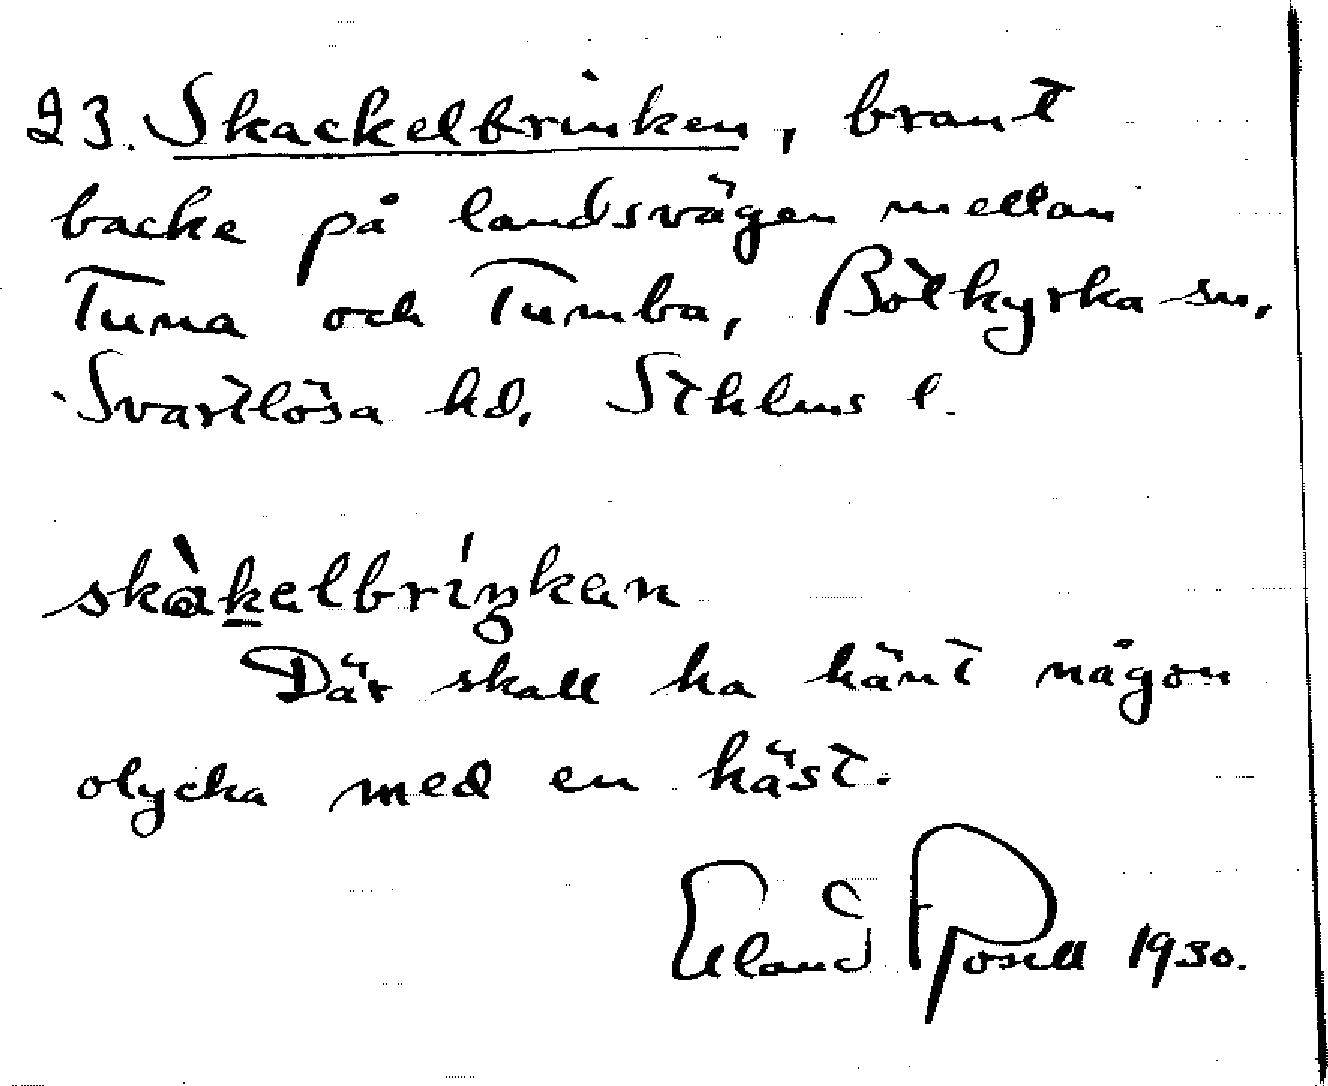 23. Skackelbrinken, brant
backe på landsvägen mellan
Tuna och Tumba, Botkyrka sn,
Svartlösa hd. Sthlms l.
skàkelbríŋkan
Där skall ha hänt någon
olycka med en häst.
Erland Rosell 1930.